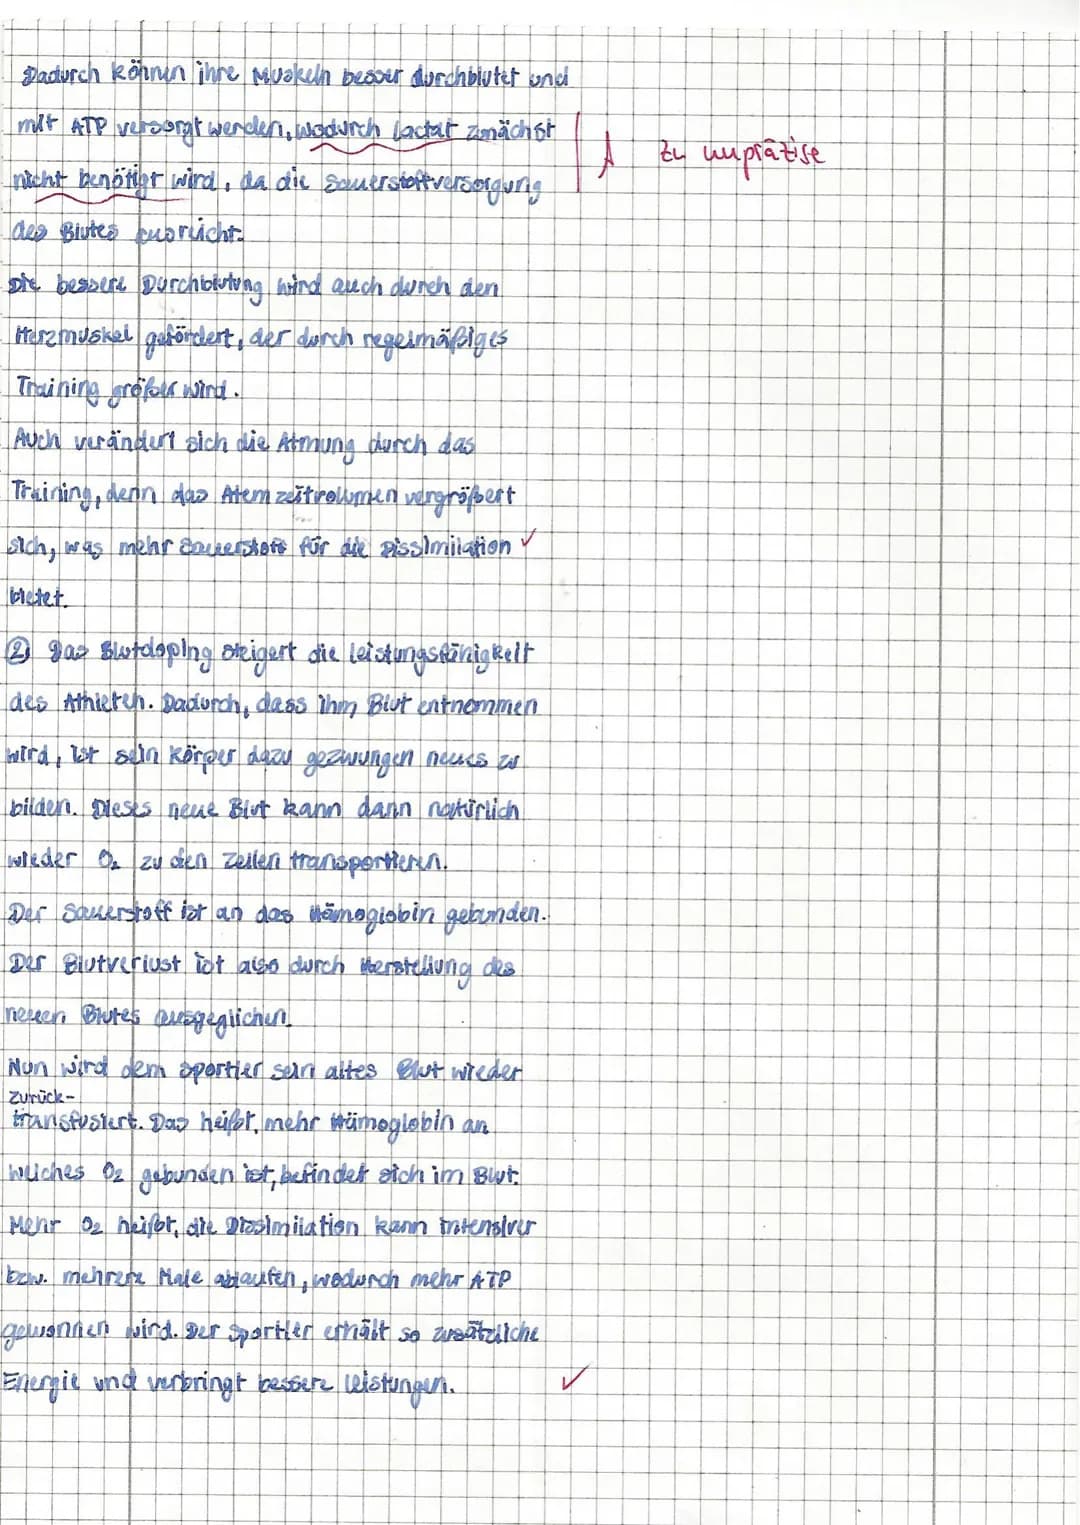 Dadurch können ihre Muskeln besser durchblutet und
mit ATP versorgt werden, wodurch Lactat zunächst
nicht benötigt wird, da die Sauerstoffversorgung
A zu unpräzise
des Blutes ausreicht.
Die bessere Durchblutung wird auch durch den
Herzmuskel gefördert, der durch regelmäßiges
Training größer wird.
Auch verändert sich die Atmung durch das
Training, denn das Atemzeitvolumen vergrößert
sich, was mehr Sauerstoff für die Dissimilation ✓
bietet.
② Das Blutdoping steigert die Leistungsfähigkeit
des Athleten. Dadurch, dass ihm Blut entnommen
wird, ist sein Körper dazu gezwungen neues zu
bilden. Dieses neue Blut kann dann natürlich
wieder O₂ zu den Zellen transportieren.
Der Sauerstoff ist an das Hämoglobin gebunden.
Der Blutverlust ist also durch Herstellung des
neuen Blutes ausgeglichen.
Nun wird dem Sportler sein altes Blut wieder
zurück-
transfusiert. Das heißt, mehr Hämoglobin an
welches O₂ gebunden ist, befindet sich im Blut.
Mehr O₂ heißt, die Dissimilation kann intensiver
bzw. mehrere Male ablaufen, wodurch mehr ATP
gewonnen wird. Der Sportler erhält so zusätzliche
Energie und verbringt bessere Leistungen. ✓